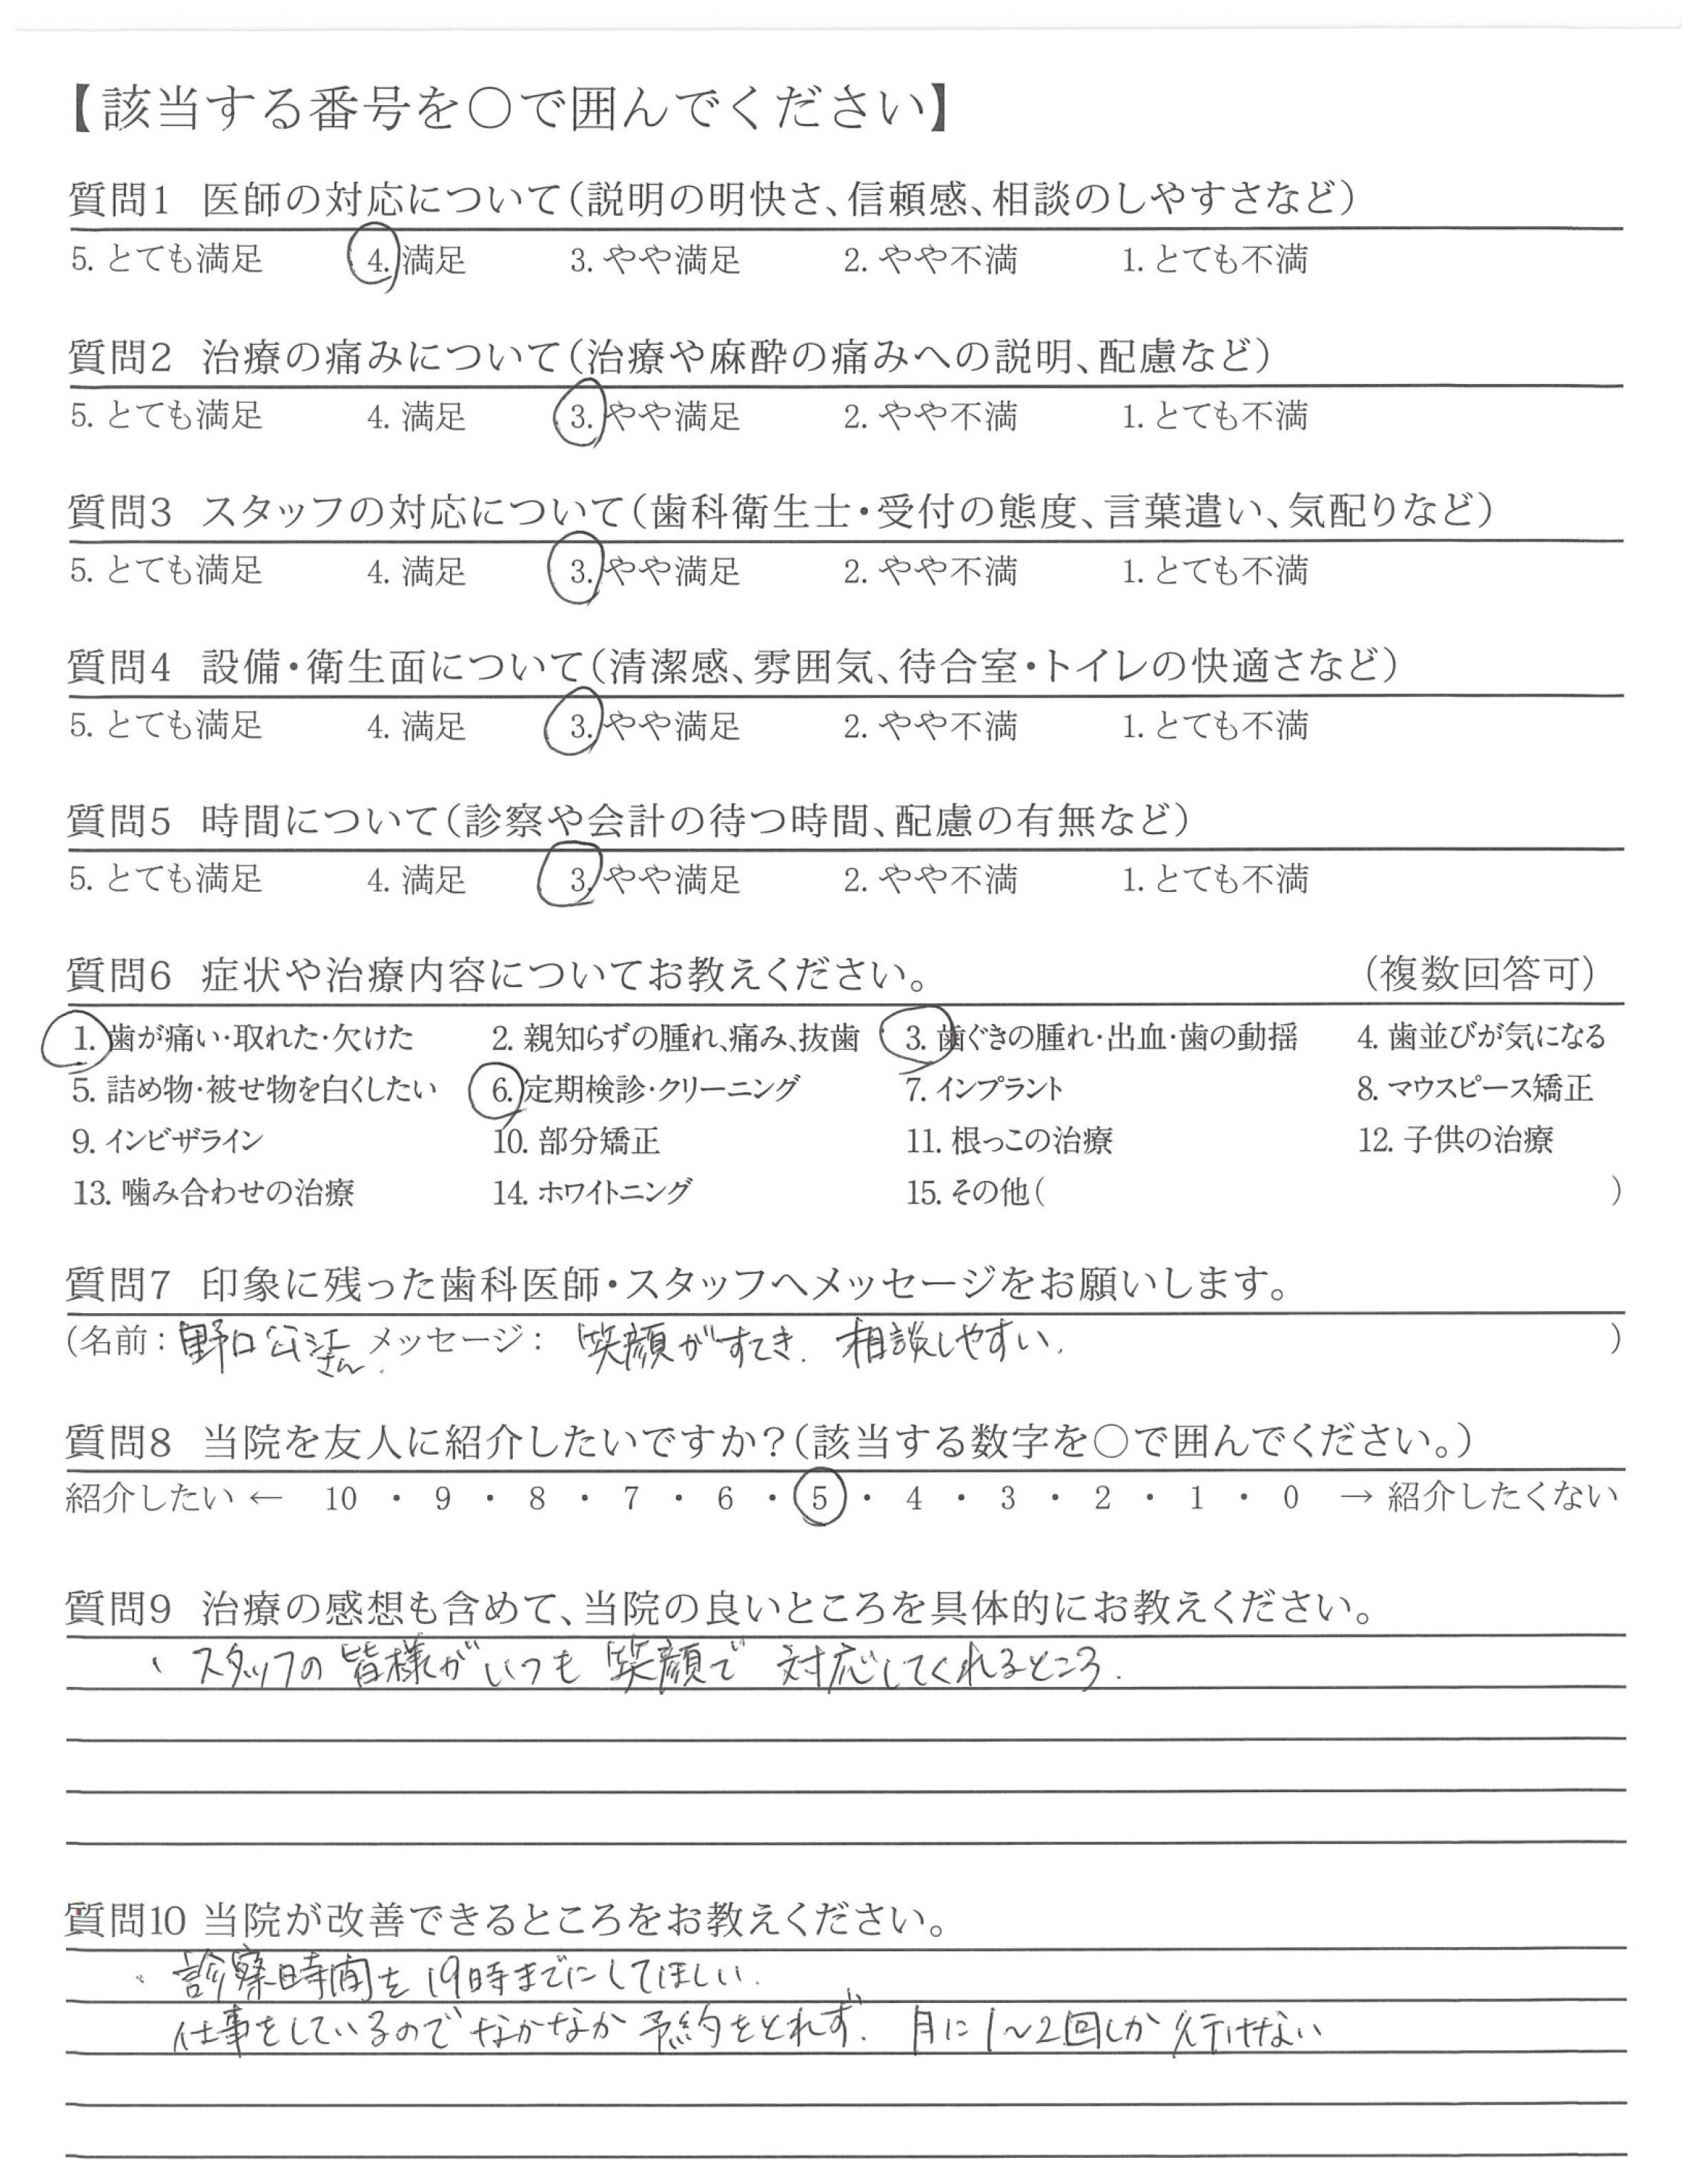 【該当する番号を〇で囲んでください】
質問1 医師の対応について(説明の明快さ、信頼感、相談のしやすさなど)
5. とても満足 4. 満足 3. やや満足 2. やや不満 1. とても不満
質問2 治療の痛みについて(治療や麻酔の痛みへの説明、配慮など)
5. とても満足 4. 満足 3. やや満足 2. やや不満 1. とても不満
質問3 スタッフの対応について(歯科衛生士・受付の態度、言葉遣い、気配りなど)
5. とても満足 4. 満足 3. やや満足 2. やや不満 1. とても不満
質問4 設備・衛生面について(清潔感、雰囲気、待合室・トイレの快適さなど)
5. とても満足 4. 満足 3. やや満足 2. やや不満 1. とても不満
質問5 時間について(診察や会計の待つ時間、配慮の有無など)
5. とても満足 4. 満足 3. やや満足 2. やや不満 1. とても不満
質問6 症状や治療内容についてお教えください。 (複数回答可)
1. 歯が痛い・取れた・欠けた 2. 親知らずの腫れ、痛み、抜歯 3. 歯ぐきの腫れ・出血・歯の動揺 4. 歯並びが気になる
5. 詰め物・被せ物を白くしたい 6. 定期検診・クリーニング 7. インプラント 8. マウスピース矯正
9. インビザライン 10. 部分矯正 11. 根っこの治療 12. 子供の治療
13. 噛み合わせの治療 14. ホワイトニング 15. その他( )
質問7 印象に残った歯科医師・スタッフへメッセージをお願いします。
(名前: 野口 公江さん. メッセージ: 笑顔がすてき. 相談しやすい. )
質問8 当院を友人に紹介したいですか?(該当する数字を〇で囲んでください。)
紹介したい ← 10 ・ 9 ・ 8 ・ 7 ・ 6 ・ 5 ・ 4 ・ 3 ・ 2 ・ 1 ・ 0 → 紹介したくない
質問9 治療の感想も含めて、当院の良いところを具体的にお教えください。
・スタッフの皆様がいつも笑顔で対応してくれるところ.
質問10 当院が改善できるところをお教えください。
・診察時間を19時までにしてほしい.
仕事をしているのでなかなか予約をとれず. 月に1~2回しか行けない